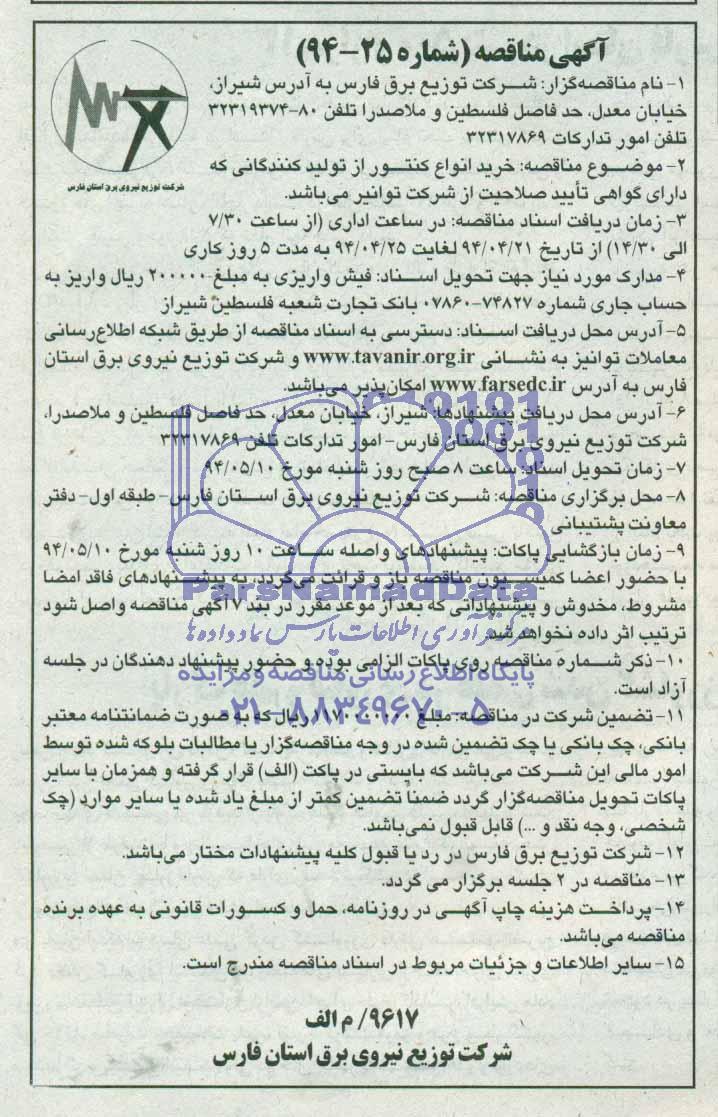 آگهی مناقصه (شماره ۲۵-۹۴)
شرکت توزیع نیروی برق استان فارس
۱- نام مناقصه‌گزار: شرکت توزیع برق فارس به آدرس شیراز،
خیابان معدل، حد فاصل فلسطین و ملاصدرا تلفن ۸۰-۳۲۳۱۹۳۷۴
تلفن امور تدارکات ۳۲۳۱۷۸۶۹
۲- موضوع مناقصه: خرید انواع کنتور از تولید کنندگانی که
دارای گواهی تأیید صلاحیت از شرکت توانیر می‌باشد.
۳- زمان دریافت اسناد مناقصه: در ساعت اداری (از ساعت ۷/۳۰
الی ۱۴/۳۰) از تاریخ ۹۴/۰۴/۲۱ لغایت ۹۴/۰۴/۲۵ به مدت ۵ روز کاری
۴- مدارک مورد نیاز جهت تحویل اسناد: فیش واریزی به مبلغ ۲۰۰۰۰۰ ریال واریز به
حساب جاری شماره ۷۴۸۲۷-۰۷۸۶۰ بانک تجارت شعبه فلسطین شیراز
۵- آدرس محل دریافت اسناد: دسترسی به اسناد مناقصه از طریق شبکه اطلاع‌رسانی
معاملات توانیز به نشانی www.tavanir.org.ir و شرکت توزیع نیروی برق استان
فارس به آدرس www.farsedc.ir امکان‌پذیر می‌باشد.
۶- آدرس محل دریافت پیشنهادها: شیراز، خیابان معدل، حد فاصل فلسطین و ملاصدرا،
شرکت توزیع نیروی برق استان فارس- امور تدارکات تلفن ۳۲۳۱۷۸۶۹
۷- زمان تحویل اسناد: ساعت ۸ صبح روز شنبه مورخ ۹۴/۰۵/۱۰
۸- محل برگزاری مناقصه: شرکت توزیع نیروی برق استان فارس- طبقه اول- دفتر
معاونت پشتیبانی
۹- زمان بازگشایی پاکات: پیشنهادهای واصله ساعت ۱۰ روز شنبه مورخ ۹۴/۰۵/۱۰
با حضور اعضا کمیسیون مناقصه باز و قرائت می‌گردد، به پیشنهادهای فاقد امضا
مشروط، مخدوش و پیشنهاداتی که بعد از موعد مقرر در بند ۷ آگهی مناقصه واصل شود
ترتیب اثر داده نخواهد شد.
ParsNamadData
مرکز فرآوری اطلاعات پارس نماد داده‌ها
۱۰- ذکر شماره مناقصه روی پاکات الزامی بوده و حضور پیشنهاد دهندگان در جلسه
آزاد است.
پایگاه اطلاع رسانی مناقصه و مزایده
۰۲۱-۸۸۳۴۹۶۷۰-۵
۱۱- تضمین شرکت در مناقصه: مبلغ ۱۱۷۰۰۰۰۰۰۰ ریال که به صورت ضمانتنامه معتبر
بانکی، چک بانکی یا چک تضمین شده در وجه مناقصه‌گزار یا مطالبات بلوکه شده توسط
امور مالی این شرکت می‌باشد که بایستی در پاکت (الف) قرار گرفته و همزمان با سایر
پاکات تحویل مناقصه‌گزار گردد ضمناً تضمین کمتر از مبلغ یاد شده یا سایر موارد (چک
شخصی، وجه نقد و ...) قابل قبول نمی‌باشد.
۱۲- شرکت توزیع برق فارس در رد یا قبول کلیه پیشنهادات مختار می‌باشد.
۱۳- مناقصه در ۲ جلسه برگزار می گردد.
۱۴- پرداخت هزینه چاپ آگهی در روزنامه، حمل و کسورات قانونی به عهده برنده
مناقصه می‌باشد.
۱۵- سایر اطلاعات و جزئیات مربوط در اسناد مناقصه مندرج است.
۹۶۱۷/ م الف
شرکت توزیع نیروی برق استان فارس